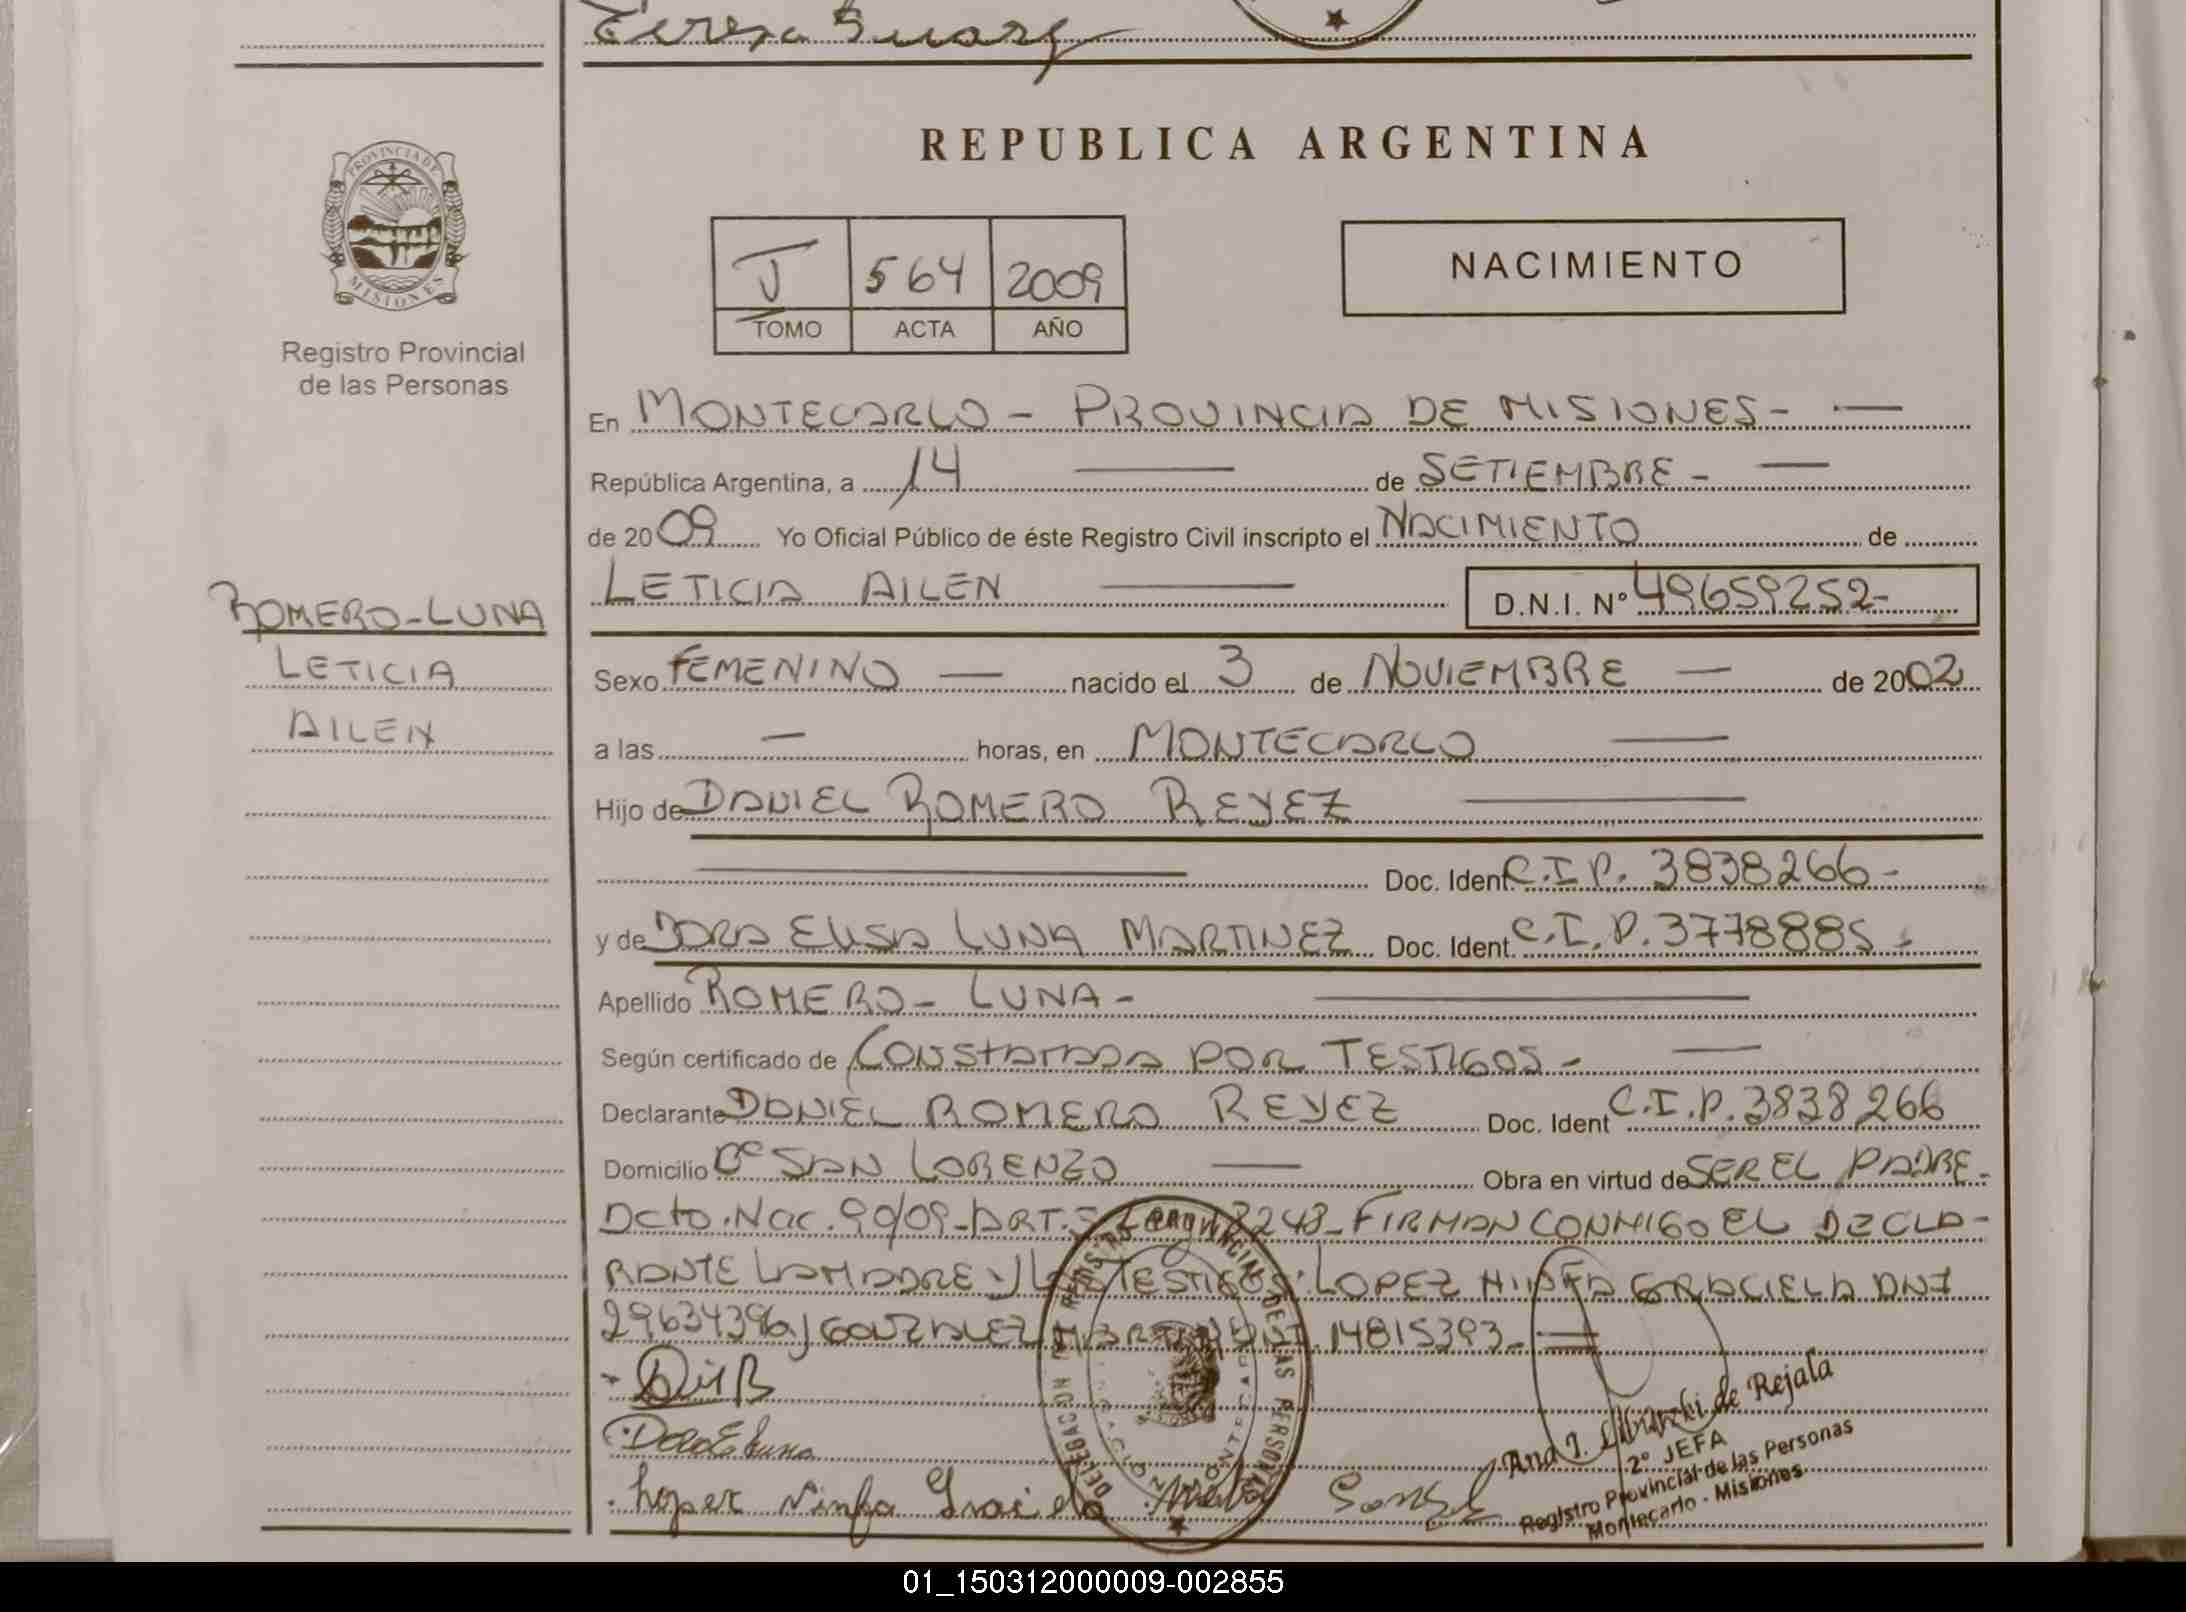 Teresa Suarez
REPUBLICA ARGENTINA
PROVINCIA DE
MISIONES
Registro Provincial
de las Personas
J 564 2009
TOMO ACTA AÑO
NACIMIENTO
En MONTECARLO - PROVINCIA DE MISIONES -
República Argentina, a 14 de SETIEMBRE -
de 2009 Yo Oficial Público de éste Registro Civil inscripto el NACIMIENTO de
LETICIA AILEN D.N.I. Nº 49659252-
ROMERO-LUNA
LETICIA
AILEN
Sexo FEMENINO nacido el 3 de NOVIEMBRE de 2002
a las — horas, en MONTECARLO
Hijo de DANIEL ROMERO REYEZ
Doc. Ident. C.I.P. 3838266-
y de DORA ELISA LUNA MARTINEZ Doc. Ident. C.I.P. 3778885-
Apellido ROMERO - LUNA -
Según certificado de CONSTATADA POR TESTIGOS -
Declarante DANIEL ROMERO REYEZ Doc. Ident C.I.P. 3838266
Domicilio Bº SAN LORENZO Obra en virtud de SER EL PADRE-
Dcto. Nac. 90/09-ART. 5 Ley 18248-FIRMAN CONMIGO EL DECLA-
RANTE LA MADRE y LOS TESTIGOS: LOPEZ NINFA GRACIELA DNI
29634396 y GONZALEZ MARTA DNI. 14815393-
Dora E Luna
Lopez Ninfa Graciela Marta Gonzalez
REGISTRO PROVINCIAL DE LAS PERSONAS
DELEGACION
MONTECARLO
Ana I. de Rejala
2º JEFA
Registro Provincial de las Personas
Montecarlo - Misiones
01_150312000009-002855